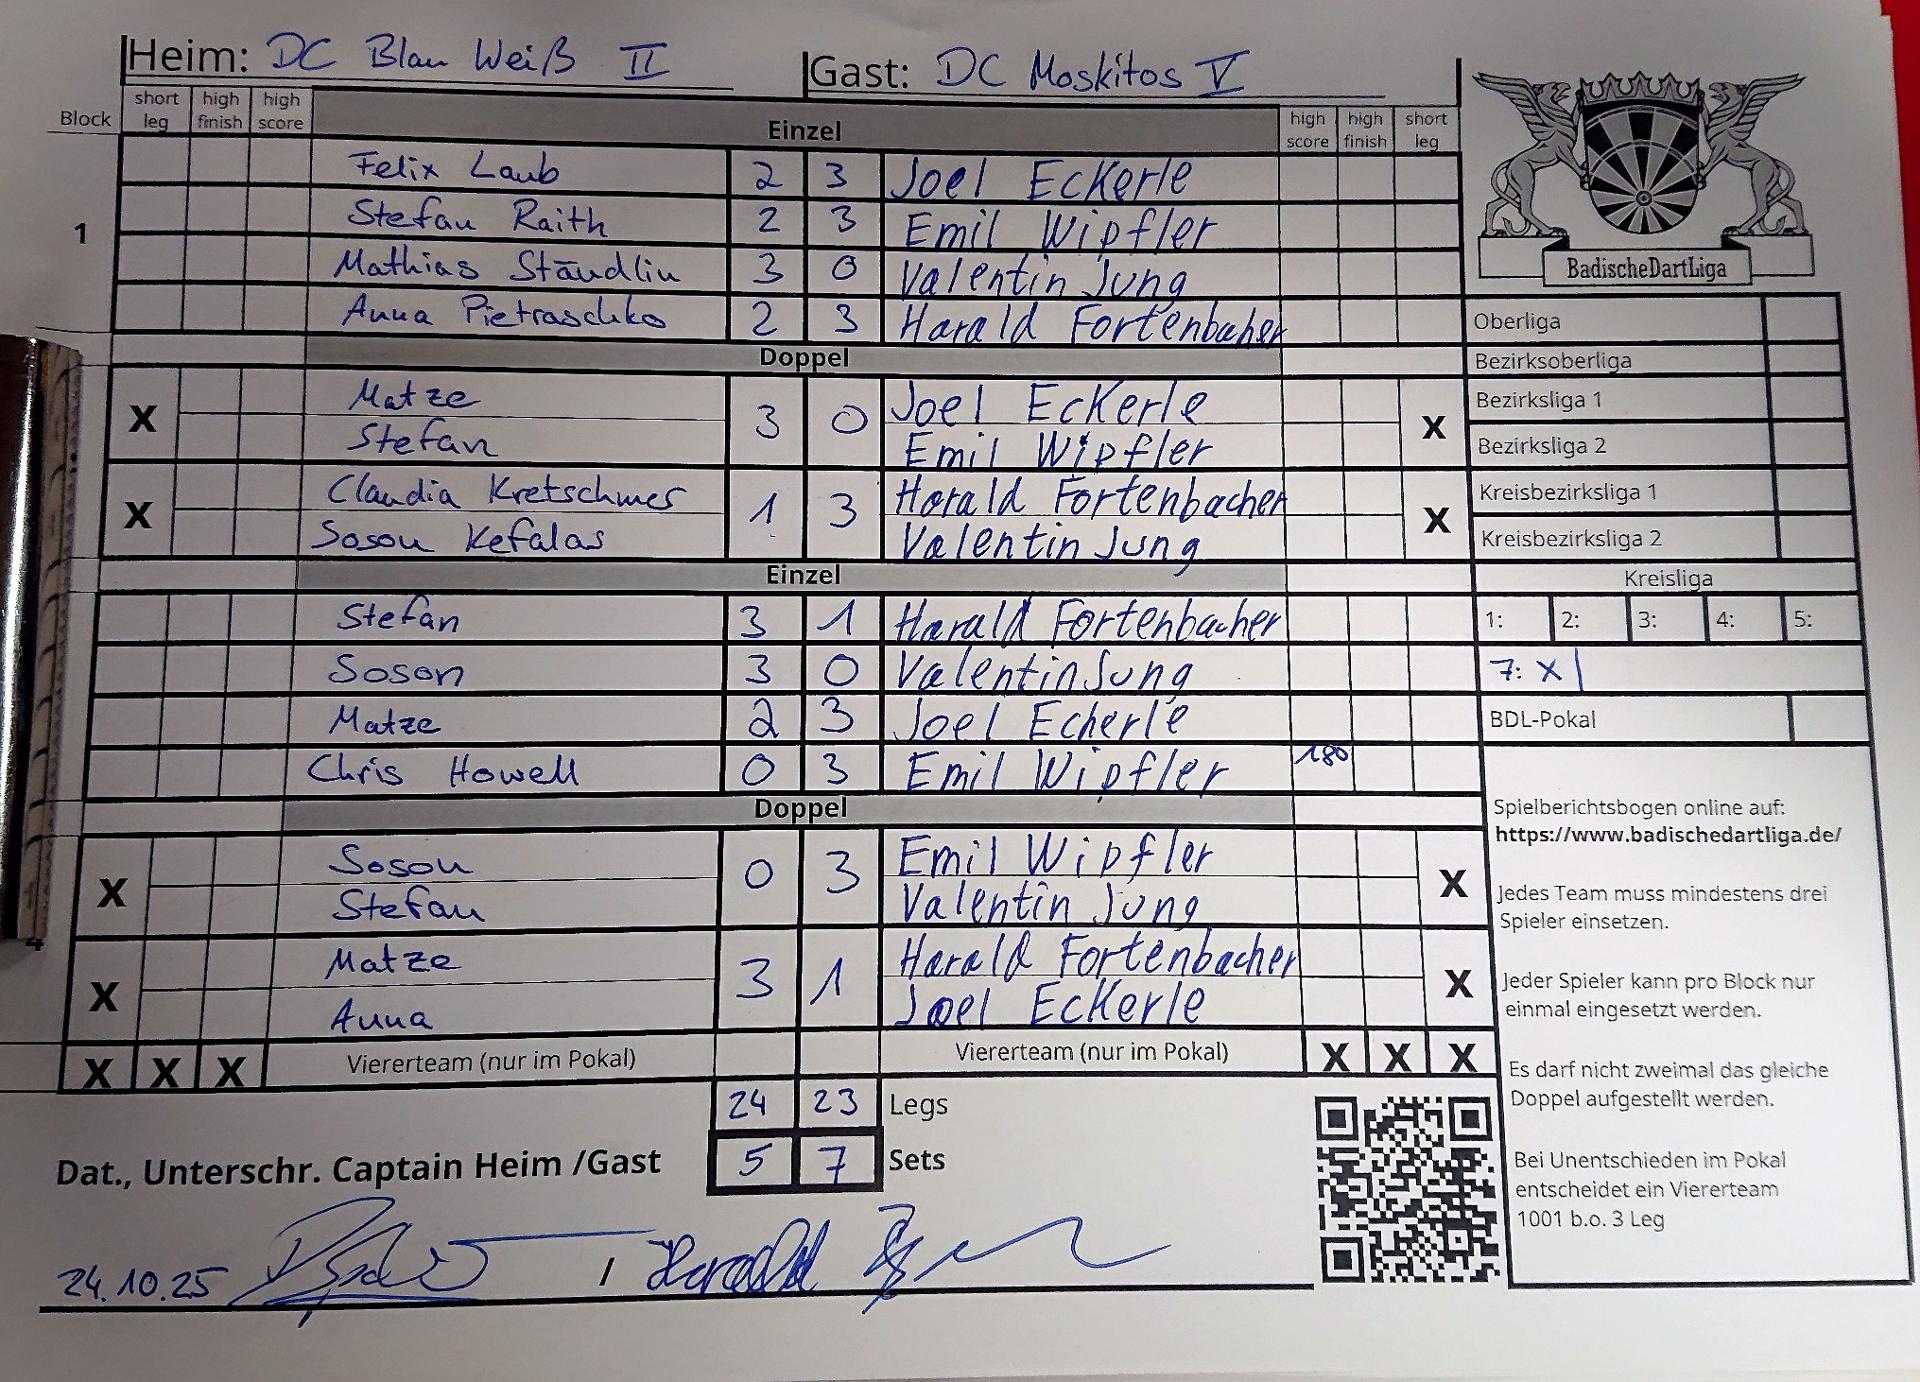 Heim: DC Blau Weiß II Gast: DC Moskitos V
Block short leg high finish high score Einzel high score high finish short leg
1
Felix Laub 2 3 Joel Eckerle
Stefan Raith 2 3 Emil Wipfler
Mathias Ständlin 3 0 Valentin Jung
Anna Pietraschko 2 3 Harald Fortenbacher
Doppel
X Matze 3 0 Joel Eckerle X
Stefan Emil Wipfler
X Claudia Kretschmer 1 3 Harald Fortenbacher X
Soson Kefalas Valentin Jung
Einzel
Stefan 3 1 Harald Fortenbacher
Soson 3 0 Valentin Jung
Matze 2 3 Joel Echerle
Chris Howell 0 3 Emil Wipfler 180
Doppel
X Soson 0 3 Emil Wipfler X
Stefan Valentin Jung
X Matze 3 1 Harald Fortenbacher X
Anna Joel Eckerle
X X X Viererteam (nur im Pokal) Viererteam (nur im Pokal) X X X
24 23 Legs
5 7 Sets
Dat., Unterschr. Captain Heim /Gast
24.10.25 / Harald
BadischeDartLiga
Oberliga
Bezirksoberliga
Bezirksliga 1
Bezirksliga 2
Kreisbezirksliga 1
Kreisbezirksliga 2
Kreisliga
1: 2: 3: 4: 5:
7: X
BDL-Pokal
Spielberichtsbogen online auf:
https://www.badischedartliga.de/
Jedes Team muss mindestens drei
Spieler einsetzen.
Jeder Spieler kann pro Block nur
einmal eingesetzt werden.
Es darf nicht zweimal das gleiche
Doppel aufgestellt werden.
Bei Unentschieden im Pokal
entscheidet ein Viererteam
1001 b.o. 3 Leg